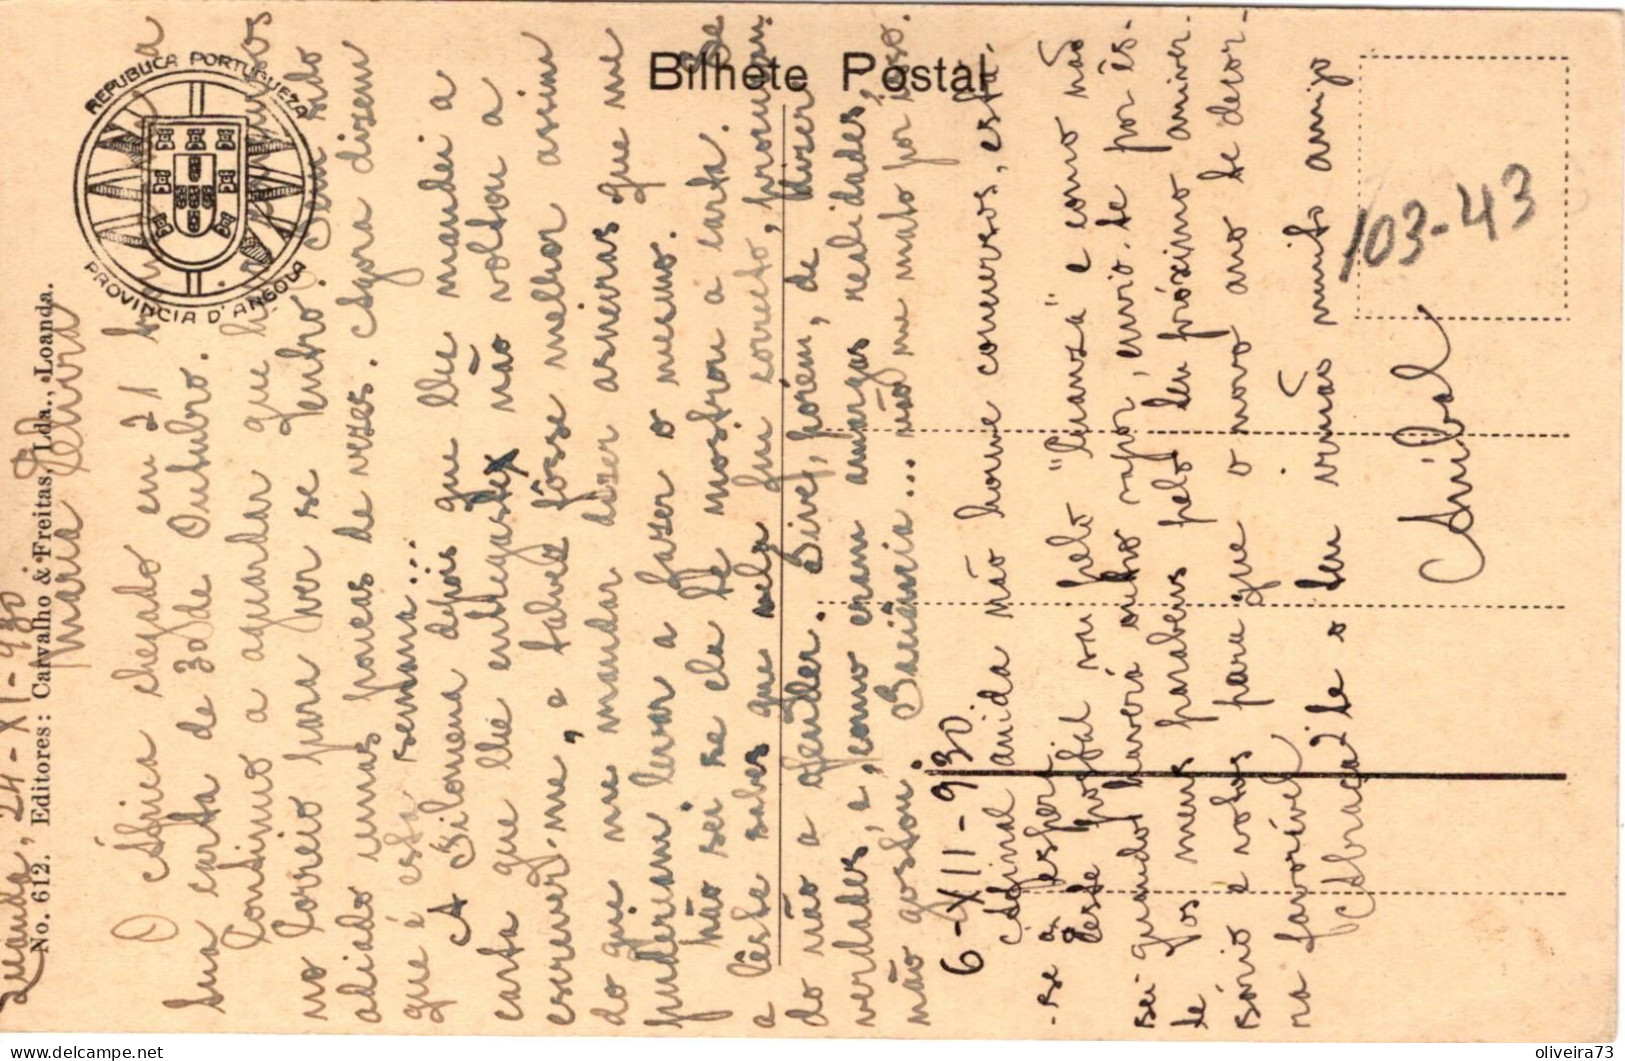 Bilhete Postal
REPUBLICA PORTUGUEZA
PROVINCIA D'ANGOLA
No. 612. Editores: Carvalho & Freitas, Lda., Loanda.
103-43
Luanda, 24-XI-930
Maria Elvira
O Africa chegado em 21
tua carta de 30 de Outubro.
Continuo a aguardar que
Correio para ver se tenho. Tem sido
adiado umas poucas de vezes. Agora dizem
que é esta semana...
A Filomena depois que lhe mandei a
carta que lhe entregaste não voltou a
escrever-me, e talvez fôsse melhor assim
do que me mandar dizer asneiras que me
puderiam levar a fazer o mesmo.
Não sei se ela te mostrou a carta. Se
a lêste sabes que nela fui correcto, procuran-
do não a ofender. Tive, porém, de dizer
verdades, e, como eram amargas realidades,
não gostou. Paciência... não me mato por isso.
6-XII-930.
Afinal ainda não houve conversos, está-
-se à espera.
Neste postal vou pelo "Cuanza" e como não
sei quando haverá outro vapor, envio-te por ês-
te os meus parabens pelo teu próximo aniver-
sário e votos para que o novo ano te decor-
ra favorível
Abraça-te o teu irmão muito amigo
Anibal
oliveira73